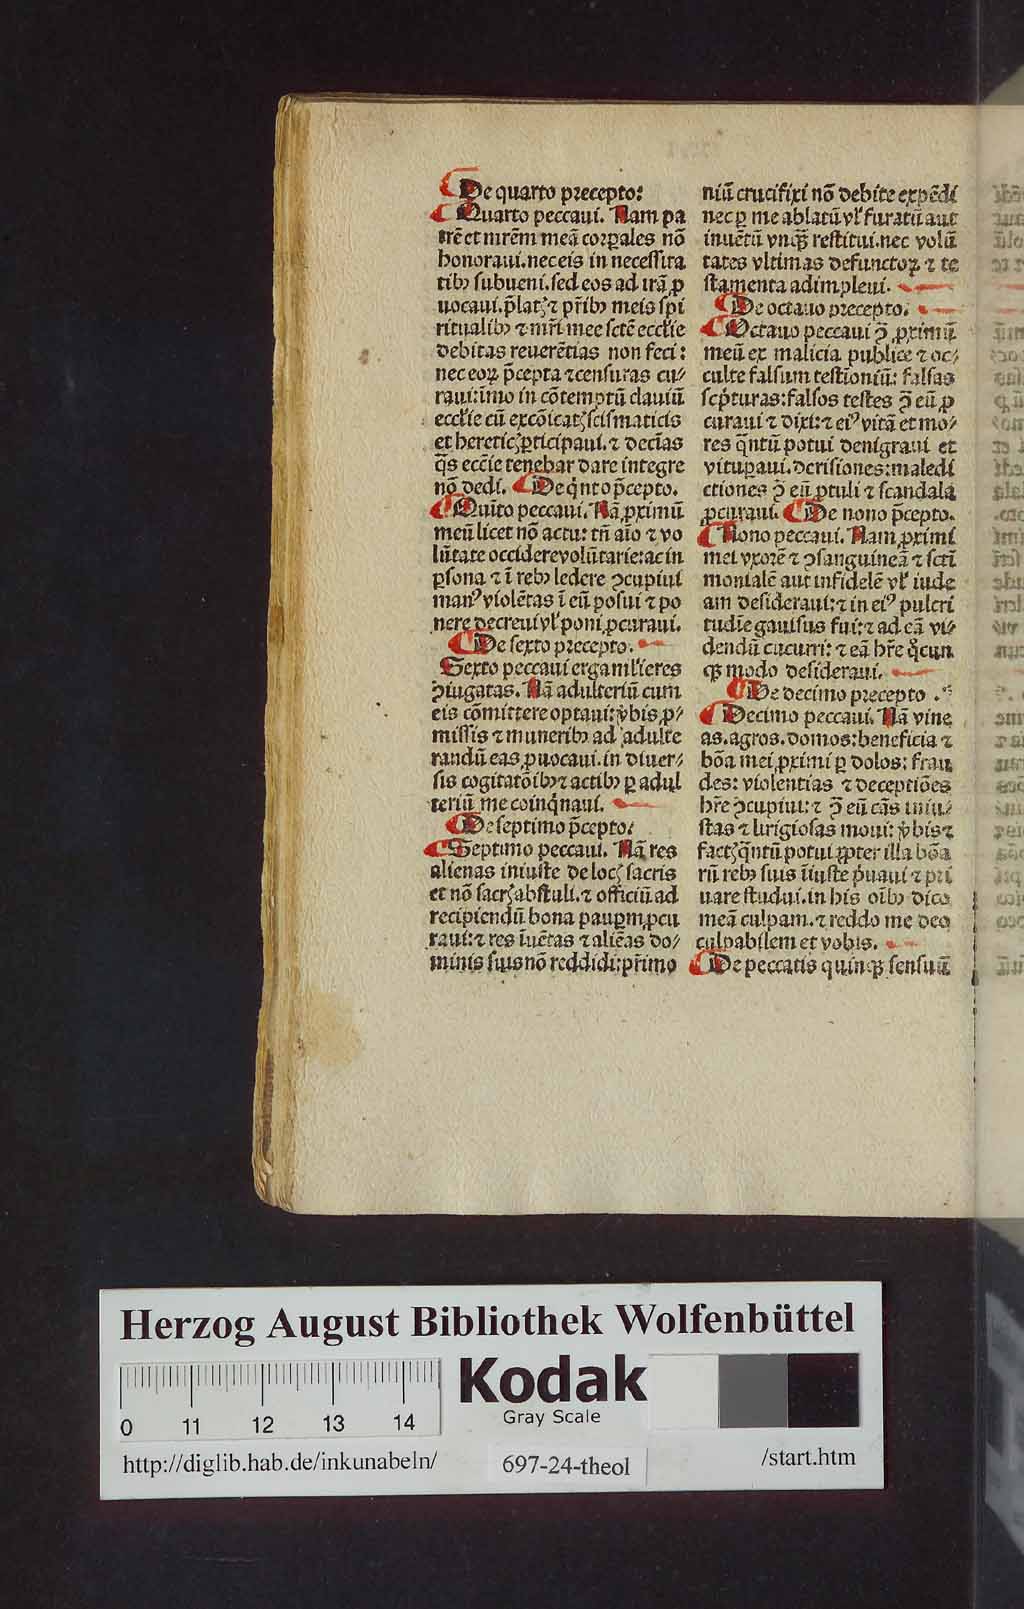 De quarto precepto:
Quarto peccaui. Nam pa
trē et mrēm meā corpales nō
honoraui. nec eis in necessita
tibꝫ subueni. sed eos ad irā ꝓ
uocaui. p̄latꝭ ⁊ pr̄ibꝫ meis spi
ritualibꝫ ⁊ mr̄i mee sctē eccl̄ie
debitas reuerētias non feci:
nec eoꝝ p̄cepta ⁊ censuras cu⸗
raui: īmo in cōtemptū clauiū
eccl̄ie cū excōicatꝭ scismaticis
et hereticꝭ ꝑticipaui. ⁊ decīas
q̄s eccīe tenebar dare integre
nō dedi. De qͥnto p̄cepto.
Quīto peccaui. Nā ꝓximū
meū licet nō actu: tn̄ aīo ⁊ vo
lūtate occidere volūtarie: ac in
ꝑsona ⁊ ī rebꝫ ledere ꝯcupiui
manꝰ violētas ī eū posui ⁊ po
nere decreui vl̓ poni ꝓcuraui.
De sexto precepto.
Sexto peccaui erga mul̓ieres
ꝯiugatas. Nā adulteriū cum
eis cōmittere optaui: v̓bis ꝓ⸗
missis ⁊ muneribꝫ ad adulte
randū eas ꝓuocaui. in diuer⸗
sis cogitatōibꝫ ⁊ actibꝫ ꝑ adul
teriū me coinqͥnaui.
De septimo p̄cepto:
Septimo peccaui. Nā res
alienas iniuste de locꝭ sacris
et nō sacrꝭ abstuli. ⁊ officiū ad
recipiendū bona pauꝑm ꝓcu
raui: ⁊ res īuētas ⁊ aliēas do⸗
minis suis nō reddidi: pr̄imo
niū crucifixi nō debite expēdi
nec ꝑ me ablatū vl̓ furatū aut
inuētū vnqꝫ restitui. nec volū
tates vltimas defunctoꝝ ⁊ te
stamenta adimpleui.
De octauo precepto.
Octauo peccaui ꝯ̄ ꝓximū
meū ex malicia publice ⁊ oc⸗
culte falsum testīoniū: falsas
scp̄turas: falsos testes ꝯ̄ eū ꝓ
curaui ⁊ dixi: ⁊ eiꝰ vitā et mo⸗
res qͣntū potui denigraui et
vituꝑaui. derisiones: maledi
ctiones ꝯ̄ eū ꝓtuli ⁊ scandala
ꝓcuraui. De nono p̄cepto.
Nono peccaui. Nam ꝓximi
mei vxorē ⁊ ꝯsanguineā ⁊ sctī
monialē aut infidelē vl̓ iude
am desideraui: ⁊ in eiꝰ pulcri
tudīe gauisus fui: ⁊ ad eā vi⸗
dendū cucurri: ⁊ eā hr̄e qͥcun
qꝫ modo desideraui.
De decimo precepto.
Decimo peccaui. Nā vine
as. agros. domos: beneficia ⁊
bōa mei ꝓximi ꝑ dolos: frau
des: violentias ⁊ deceptiōes
hr̄e ꝯcupiui: ⁊ ꝯ̄ eū cās iniu⸗
stas ⁊ litigiosas moui: v̓bis ⁊
factꝭ qͣntū potui ꝓpter illa bōa
rū rebꝫ suis īiuste pͥuaui ⁊ pri
uare studui. in his oībꝫ dico
meā culpam. ⁊ reddo me deo
culpabilem et vobis.
De peccatis quinqꝫ sensuū
Herzog August Bibliothek Wolfenbüttel
0 11 12 13 14
Kodak
Gray Scale
http://diglib.hab.de/inkunabeln/
697-24-theol
/start.htm